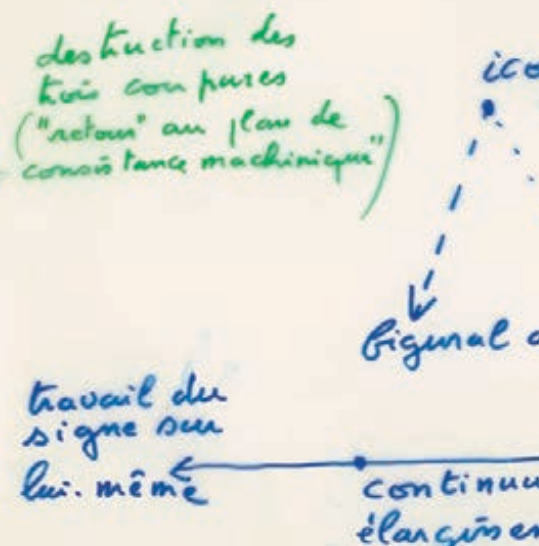 destruction des
trois coupures
("retour" au plan de
consistance machinique")
ico
figural d
travail du
signe sur
lui-même
continuu
élargissem